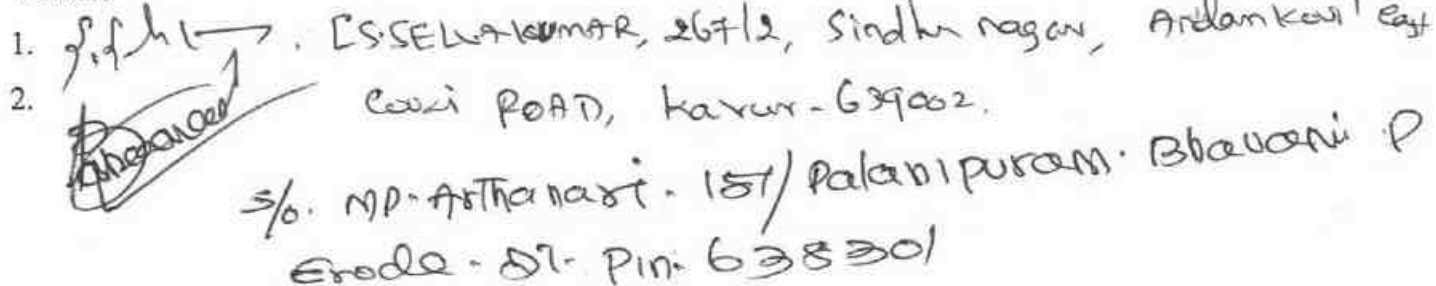 1. [S.SELVAKUMAR, 267/2, Sindhu nagar, Andankovil East
2. Covai ROAD, Karur-639002.
S/o. MP. Arthanari. 157/ Palanipuram. Bhavani P
Erode. DT. Pin. 638301